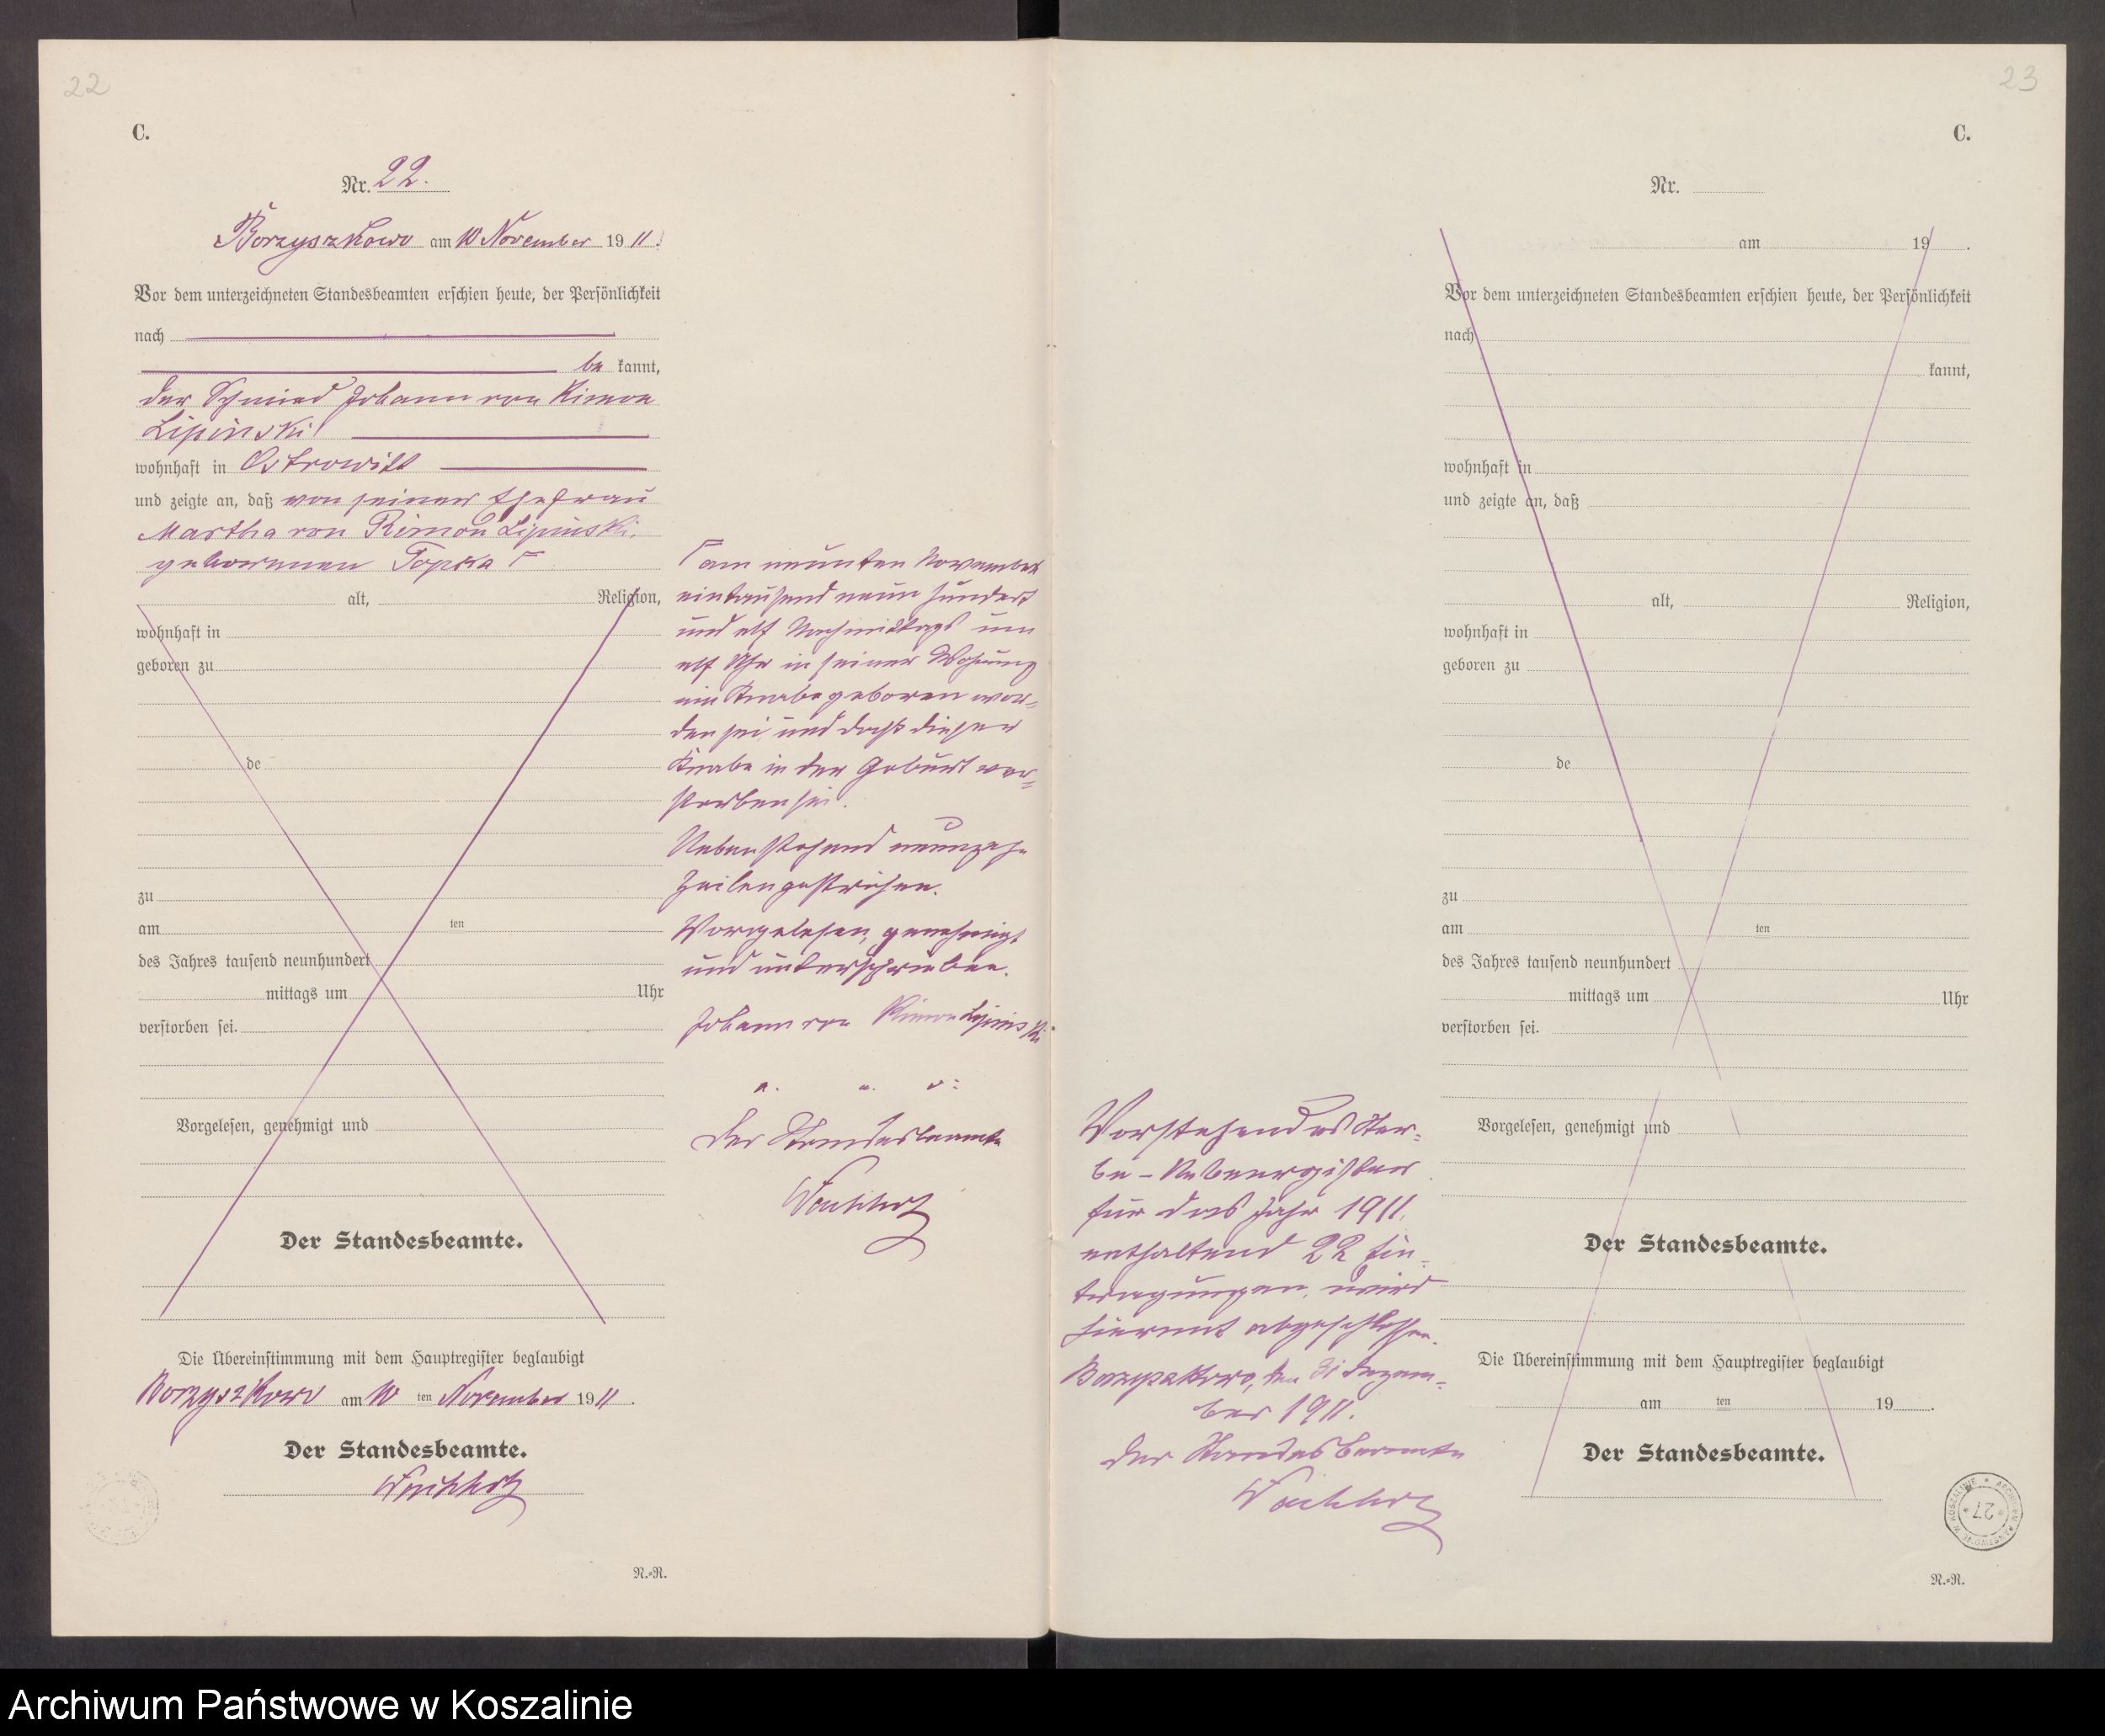 22
C.
Nr. 22.
Borzyszkowo am 10 November 1911.
Vor dem unterzeichneten Standesbeamten erschien heute, der Persönlichkeit
nach
be kannt,
der Schmied Johann von Rimon
Lipinski
wohnhaft in Ostrowitt
und zeigte an, daß von seiner Ehefrau
Martha von Rimon Lipinski,
geborenen Topka Γ
alt, Religion,
wohnhaft in
geboren zu
de
zu
am ten
des Jahres tausend neunhundert
mittags um Uhr
verstorben sei.
Vorgelesen, genehmigt und
Der Standesbeamte.
Die Übereinstimmung mit dem Hauptregister beglaubigt
Borzyszkowo am 10 ten November 1911.
Der Standesbeamte.
N.=R.
Γ am neunten November
eintausend neun hundert
und elf Nachmittags um
elf Uhr in seiner Wohnung
ein Knabe geboren wor=
den sei und daß dieser
Knabe in der Geburt ver=
storben sei.
Nebenstehend neunzehn
Zeilen gestrichen.
Vorgelesen, genehmigt
und unterschrieben.
Johann von Rimon Lipinski
Der Standesbeamte
23
C.
Nr.
am 19 .
Vor dem unterzeichneten Standesbeamten erschien heute, der Persönlichkeit
nach
kannt,
wohnhaft in
und zeigte an, daß
alt, Religion,
wohnhaft in
geboren zu
de
zu
am ten
des Jahres tausend neunhundert
mittags um Uhr
verstorben sei.
Vorgelesen, genehmigt und
Der Standesbeamte.
Die Übereinstimmung mit dem Hauptregister beglaubigt
am ten 19 .
Der Standesbeamte.
N.=R.
Vorstehendes Ster=
be-Nebenregister
für das Jahr 1911,
enthaltend 22 Ein=
tragungen, wird
hiermit abgeschlossen.
Borzyszkowo, den 31 Dezem=
ber 1911.
Der Standesbeamte
ARCHIWUM PAŃSTWOWE W KOSZALINIE
27
Archiwum Państwowe w Koszalinie